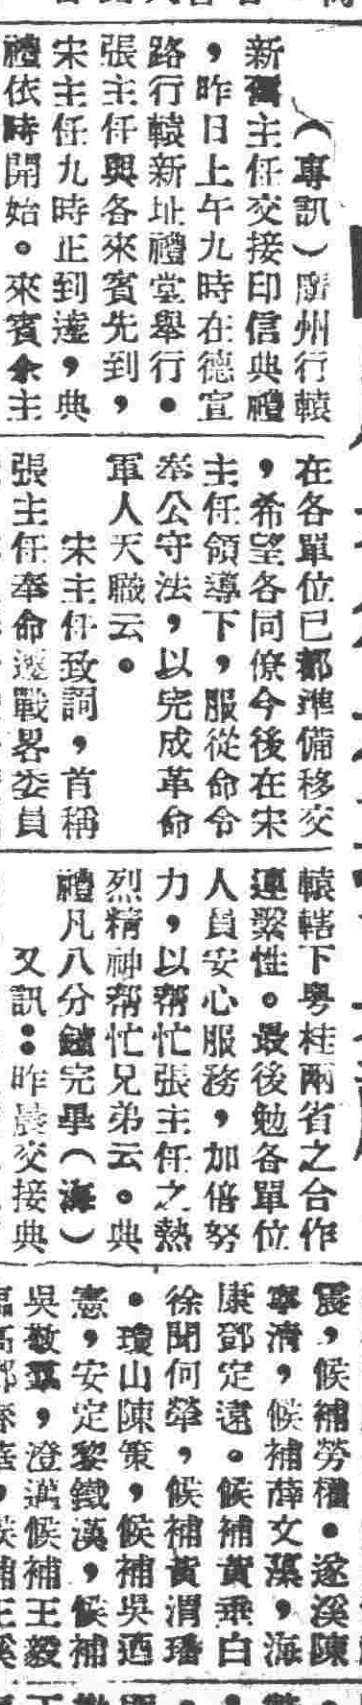 （專訊）廣州行轅
新舊主任交接印信典禮
，昨日上午九時在德宣
路行轅新址禮堂舉行。
張主任與各來賓先到，
宋主任九時正到達，典
禮依時開始。來賓余主
在各單位已都準備移交
，希望各同僚今後在宋
主任領導下，服從命令
奉公守法，以完成革命
軍人天職云。
宋主任致詞，首稱
張主任奉命遷戰畧委員
轅轄下粵桂兩省之合作
連繫性。最後勉各單位
人員安心服務，加倍努
力，以帮忙張主任之熱
烈精神帮忙兄弟云。典
禮凡八分鐘完畢（海）
又訊：昨晨交接典
震，候補勞權。遂溪陳
寧清，候補薛文藻，海
康鄧定遠。候補黃垂白
徐聞何犖，候補黃渭璠
。瓊山陳策，候補吳迺
憲，安定黎鐵漢，候補
吳敬羣，澄邁候補王毅